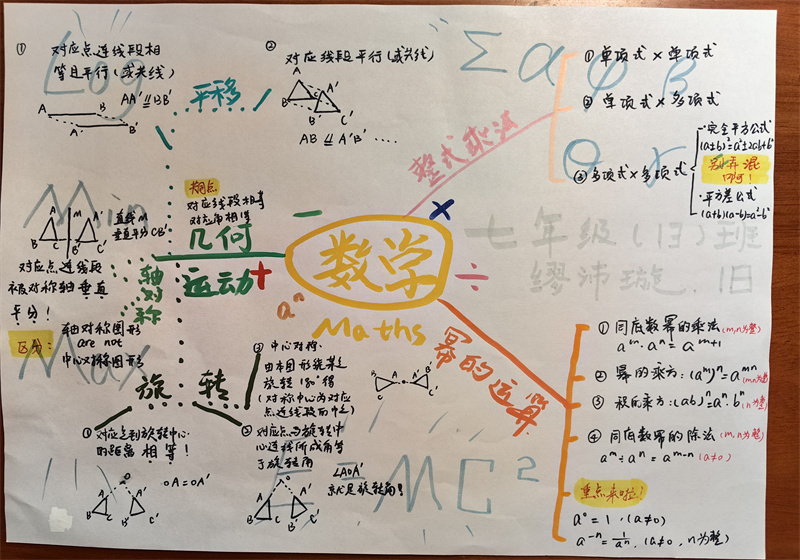 ① 对应点连线段相
等且平行(或共线)
AA' ⫽ BB'
A
B
A'
B'
平移
② 对应线段平行(或共线)
A
A'
B
B'
C
C'
AB ⫽ A'B' ····
Log
Σ α φ β
θ γ
Min
Max
E=MC²
整式乘法
① 单项式×单项式
② 单项式×多项式
③ 多项式×多项式
·完全平方公式
(a±b)²=a²±2ab+b²
别弄混
啊!
·平方差公式
(a+b)(a-b)=a²-b²
七年级(13)班
缪沛璇. 18
相同点
对应线段相等
对应角相等
几何
运动
数学
Maths
− × + ÷
aⁿ
轴对称
A
M
A'
B
C
C'
B'
直线M
垂直平分CB'
对应点连线段
被对称轴垂直
平分!
区分:
轴对称图形
are not
中心对称图形
旋转
① 对应点到旋转中心
的距离相等!
OA=OA'
③ 中心对称:
由本图形绕某点
旋转180°得
(对称中心为对应
点连线段的中点)
② 对应点与旋转中
心连线所成角等
于旋转角
∠AOA'
就是旋转角!
幂的运算
① 同底数幂的乘法(m,n为整)
aᵐ·aⁿ=aᵐ⁺¹
② 幂的乘方:(aᵐ)ⁿ=aᵐⁿ(m,n为整)
③ 积的乘方:(ab)ⁿ=aⁿ·bⁿ(n为整)
④ 同底数幂的除法(m,n为整)
aᵐ÷aⁿ=aᵐ⁻ⁿ(a≠0)
重点来啦!
a⁰=1.(a≠0)
a⁻ⁿ=1/aⁿ.(a≠0,n为整)